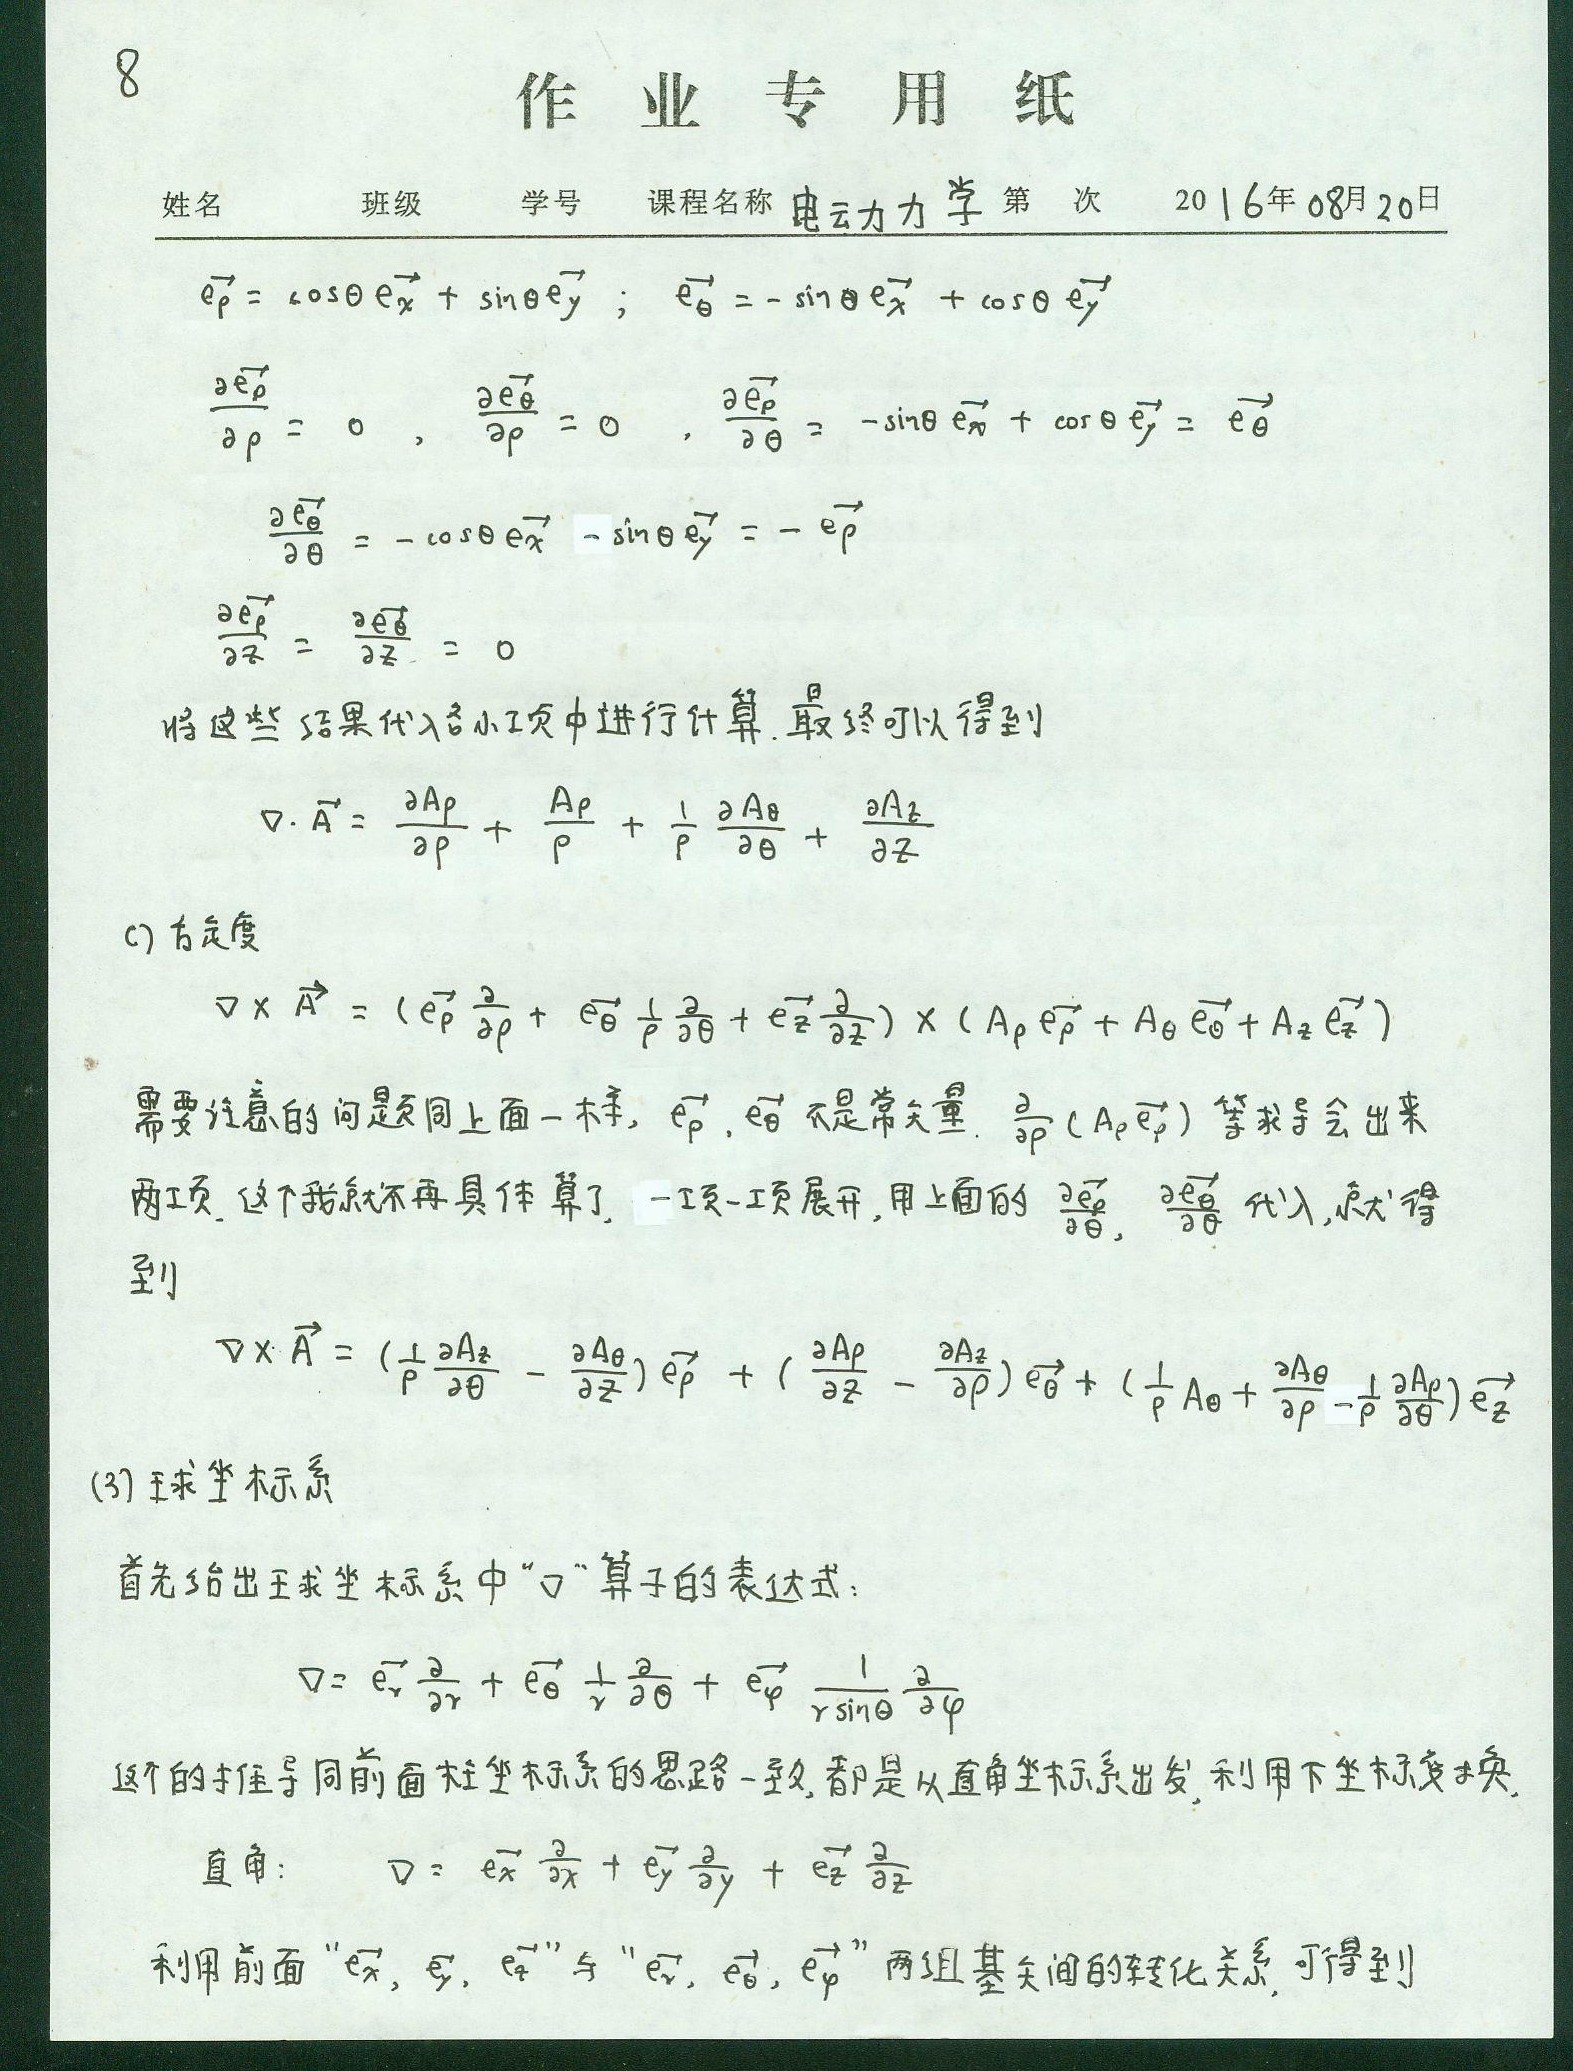 8
作业专用纸
姓名 班级 学号 课程名称 电动力学 第 次 2016年08月20日
$\vec{e_\rho} = \cos\theta\,\vec{e_x} + \sin\theta\,\vec{e_y}$ ; $\vec{e_\theta} = -\sin\theta\,\vec{e_x} + \cos\theta\,\vec{e_y}$
$\frac{\partial \vec{e_\rho}}{\partial \rho} = 0$ , $\frac{\partial \vec{e_\theta}}{\partial \rho} = 0$ , $\frac{\partial \vec{e_\rho}}{\partial \theta} = -\sin\theta\,\vec{e_x} + \cos\theta\,\vec{e_y} = \vec{e_\theta}$
$\frac{\partial \vec{e_\theta}}{\partial \theta} = -\cos\theta\,\vec{e_x} - \sin\theta\,\vec{e_y} = -\vec{e_\rho}$
$\frac{\partial \vec{e_\rho}}{\partial z} = \frac{\partial \vec{e_\theta}}{\partial z} = 0$
将这些结果代入各小项中进行计算.最终可以得到
$\nabla \cdot \vec{A} = \frac{\partial A_\rho}{\partial \rho} + \frac{A_\rho}{\rho} + \frac{1}{\rho}\frac{\partial A_\theta}{\partial \theta} + \frac{\partial A_z}{\partial z}$
c) 旋度
$\nabla \times \vec{A} = (\vec{e_\rho}\frac{\partial}{\partial \rho} + \vec{e_\theta}\frac{1}{\rho}\frac{\partial}{\partial \theta} + \vec{e_z}\frac{\partial}{\partial z}) \times (A_\rho\vec{e_\rho} + A_\theta\vec{e_\theta} + A_z\vec{e_z})$
需要注意的问题同上面一样, $\vec{e_\rho}$, $\vec{e_\theta}$ 不是常矢量. $\frac{\partial}{\partial \rho}(A_\rho\vec{e_\rho})$ 等求导会出来
两项. 这个我就不再具体算了, 一项一项展开,用上面的 $\frac{\partial \vec{e_\rho}}{\partial \theta}$, $\frac{\partial \vec{e_\theta}}{\partial \theta}$ 代入,就得
到
$\nabla \times \vec{A} = (\frac{1}{\rho}\frac{\partial A_z}{\partial \theta} - \frac{\partial A_\theta}{\partial z})\vec{e_\rho} + (\frac{\partial A_\rho}{\partial z} - \frac{\partial A_z}{\partial \rho})\vec{e_\theta} + (\frac{1}{\rho}A_\theta + \frac{\partial A_\theta}{\partial \rho} - \frac{1}{\rho}\frac{\partial A_\rho}{\partial \theta})\vec{e_z}$
(3) 球坐标系
首先给出球坐标系中“∇”算子的表达式:
$\nabla = \vec{e_r}\frac{\partial}{\partial r} + \vec{e_\theta}\frac{1}{r}\frac{\partial}{\partial \theta} + \vec{e_\varphi}\frac{1}{r\sin\theta}\frac{\partial}{\partial \varphi}$
这个的推导同前面柱坐标系的思路一致,都是从直角坐标系出发,利用下坐标变换.
直角: $\nabla = \vec{e_x}\frac{\partial}{\partial x} + \vec{e_y}\frac{\partial}{\partial y} + \vec{e_z}\frac{\partial}{\partial z}$
利用前面“$\vec{e_x}$, $\vec{e_y}$, $\vec{e_z}$”与“$\vec{e_r}$, $\vec{e_\theta}$, $\vec{e_\varphi}$”两组基矢间的转化关系,可得到